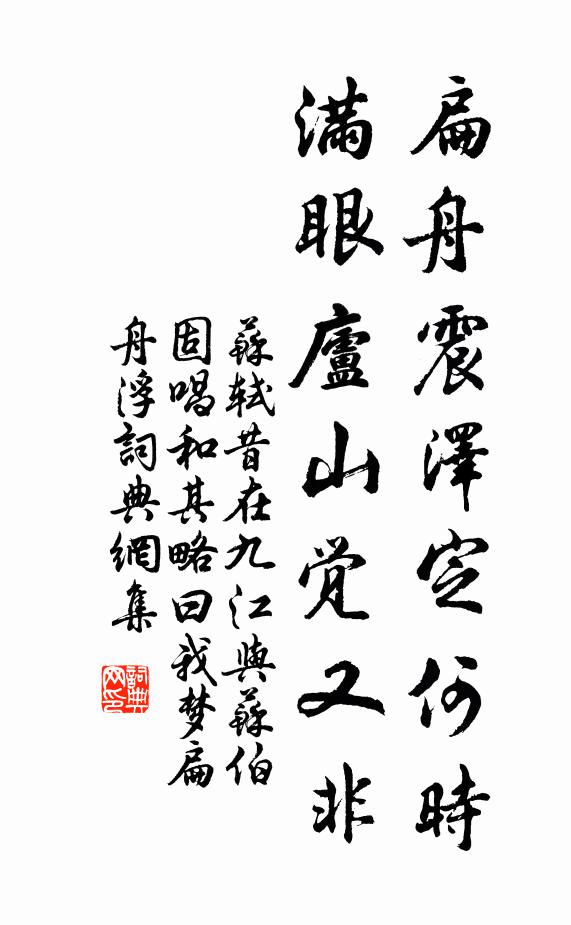 扁舟震澤定何時
滿眼廬山觉又非
蘇軾昔在九江與蘇伯
固唱和其略曰我梦扁
舟浮詞典網集
詞典
网印